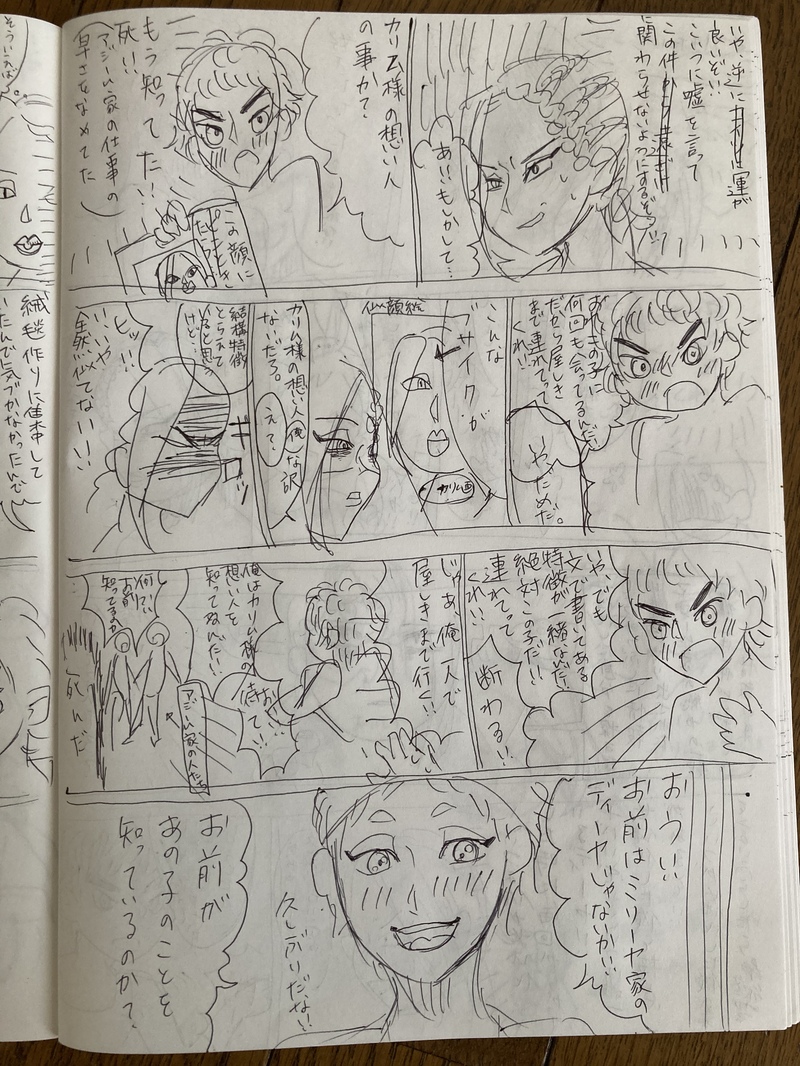 いや、逆に運が
良いぞ!!
こいつに嘘を言って
この件
に関わらせないようにするぞう!!
あ!!もしかして…
カリム様の想い人
の事か?
もう知ってた!!
死!!
アジーム家の仕事の
早さをなめてた
この顔に
ピンときたら
おれこの子に
何回も会ってるんだ
だから屋しき
まで連れてって
くれ!!
やだめだ。
こんな
ブサイクが
似顔絵
カリム画
カリム様の想い人(俺)な訳
ないだろ。
えて?
結構特徴
とらえて
いると思う
けど…
ヒッ!!
いいや
全然似てない!!
いや、でも
文で書いてある
特徴が一緒なんだ!
絶対この子だ!!
連れてって
くれ!!
断わる!!
じゃあ、俺一人で
屋しきまで行く!!
おい
待て!!
俺はカリム様の
想い人を
知ってるんだ!!
アジーム家の人たち
何でい
お前
知ってるの?
死んだ
おうい
お前はミリーヤ家の
ディーヤじゃないかい?
久しぶりだな!!
お前が
あの子のことを
知っているのか?
そういえば
絨毯作りに集中して
いたんで気づかなかったんでん